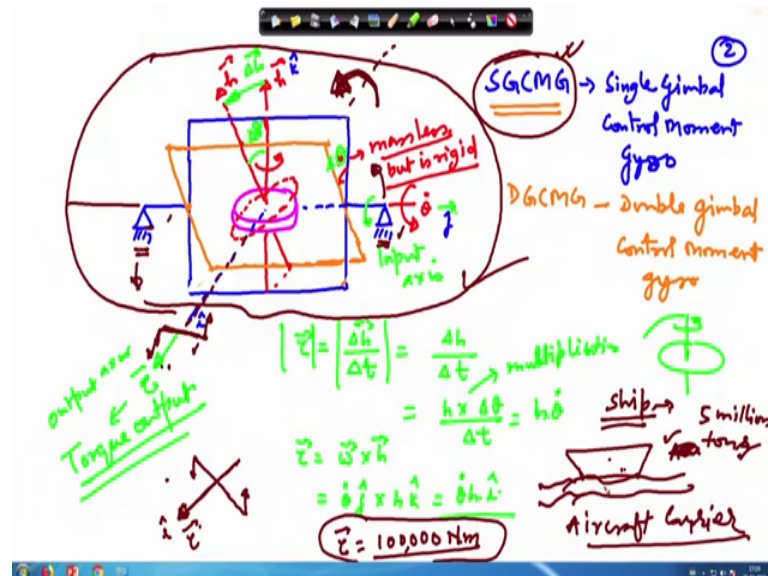 ②
SGCMG → Single Gimbal
Control Moment
Gyro
DGCMG - Double gimbal
Control moment
gyro
Δh
h
k̂
Δθ
massless
but is rigid
θ̇
ĵ
Input
axis
î
output axis
τ
Torque output
|τ| = |Δh/Δt| = Δh/Δt
multiplication
= h × Δθ/Δt = hθ̇
τ = ω × h
= θ̇ ĵ × h k̂ = θ̇ h î
τ = 100,000 Nm
ship → 5 million
tons
Aircraft Carrier
î τ